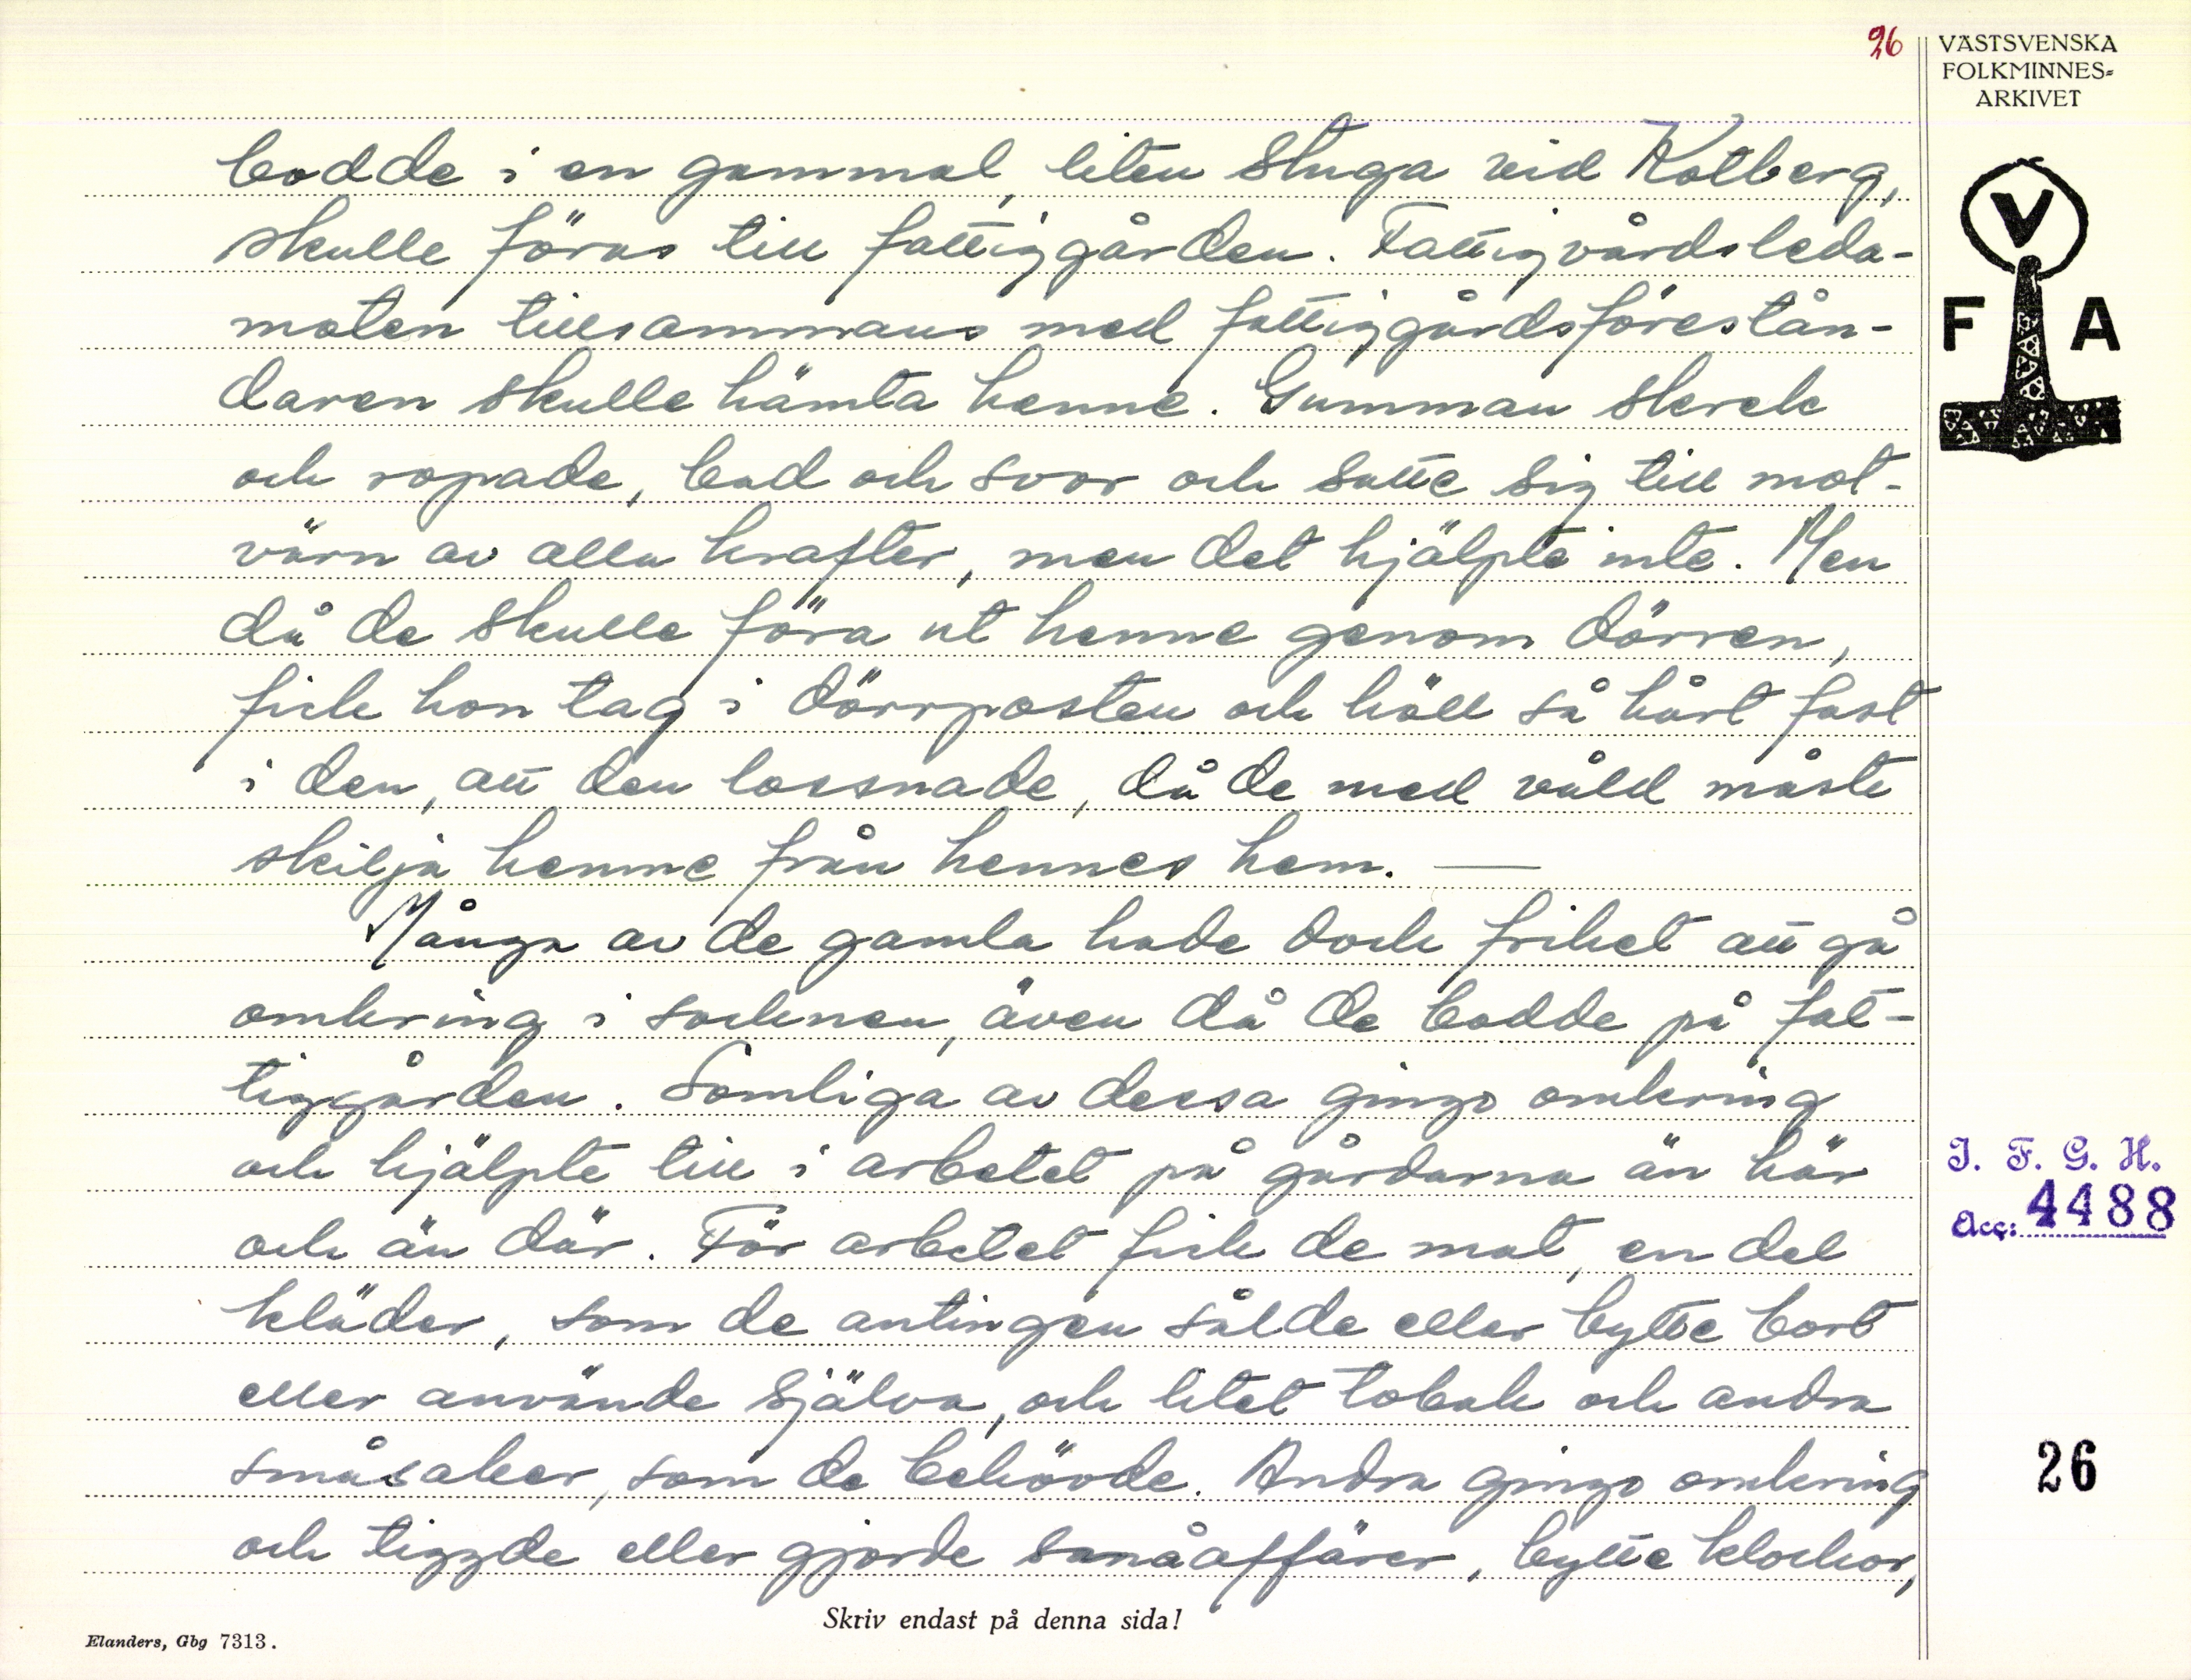 26
VÄSTSVENSKA
FOLKMINNES=
ARKIVET
bodde i en gammal, liten stuga vid Kolberg,
skulle föras till fattiggården. Fattigvårdsleda-
moten tillsammans med fattiggårdsförestån-
daren skulle hämta henne. Gumman skrek
och ropade, bad och svor och satte sig till mot-
värn av alla krafter, men det hjälpte inte. Men
då de skulle föra ut henne genom dörren,
fick hon tag i dörrposten och höll så hårt fast
i den, att den lossnade, då de med våld måste
skilja henne från hennes hem. —
Många av de gamla hade dock frihet att gå
omkring i socknen, även då de bodde på fat-
tiggården. Somliga av dessa gingo omkring
och hjälpte till i arbetet på gårdarna än här
och än där. För arbetet fick de mat, en del
kläder, som de antingen sålde eller bytte bort
eller använde själva, och litet tobak och andra
småsaker, som de behövde. Andra gingo omkring
och tiggde eller gjorde småaffärer, bytte klockor,
V
F A
I. F. G. H.
Acc: 4488
26
Skriv endast på denna sida!
Elanders, Gbg 7313.